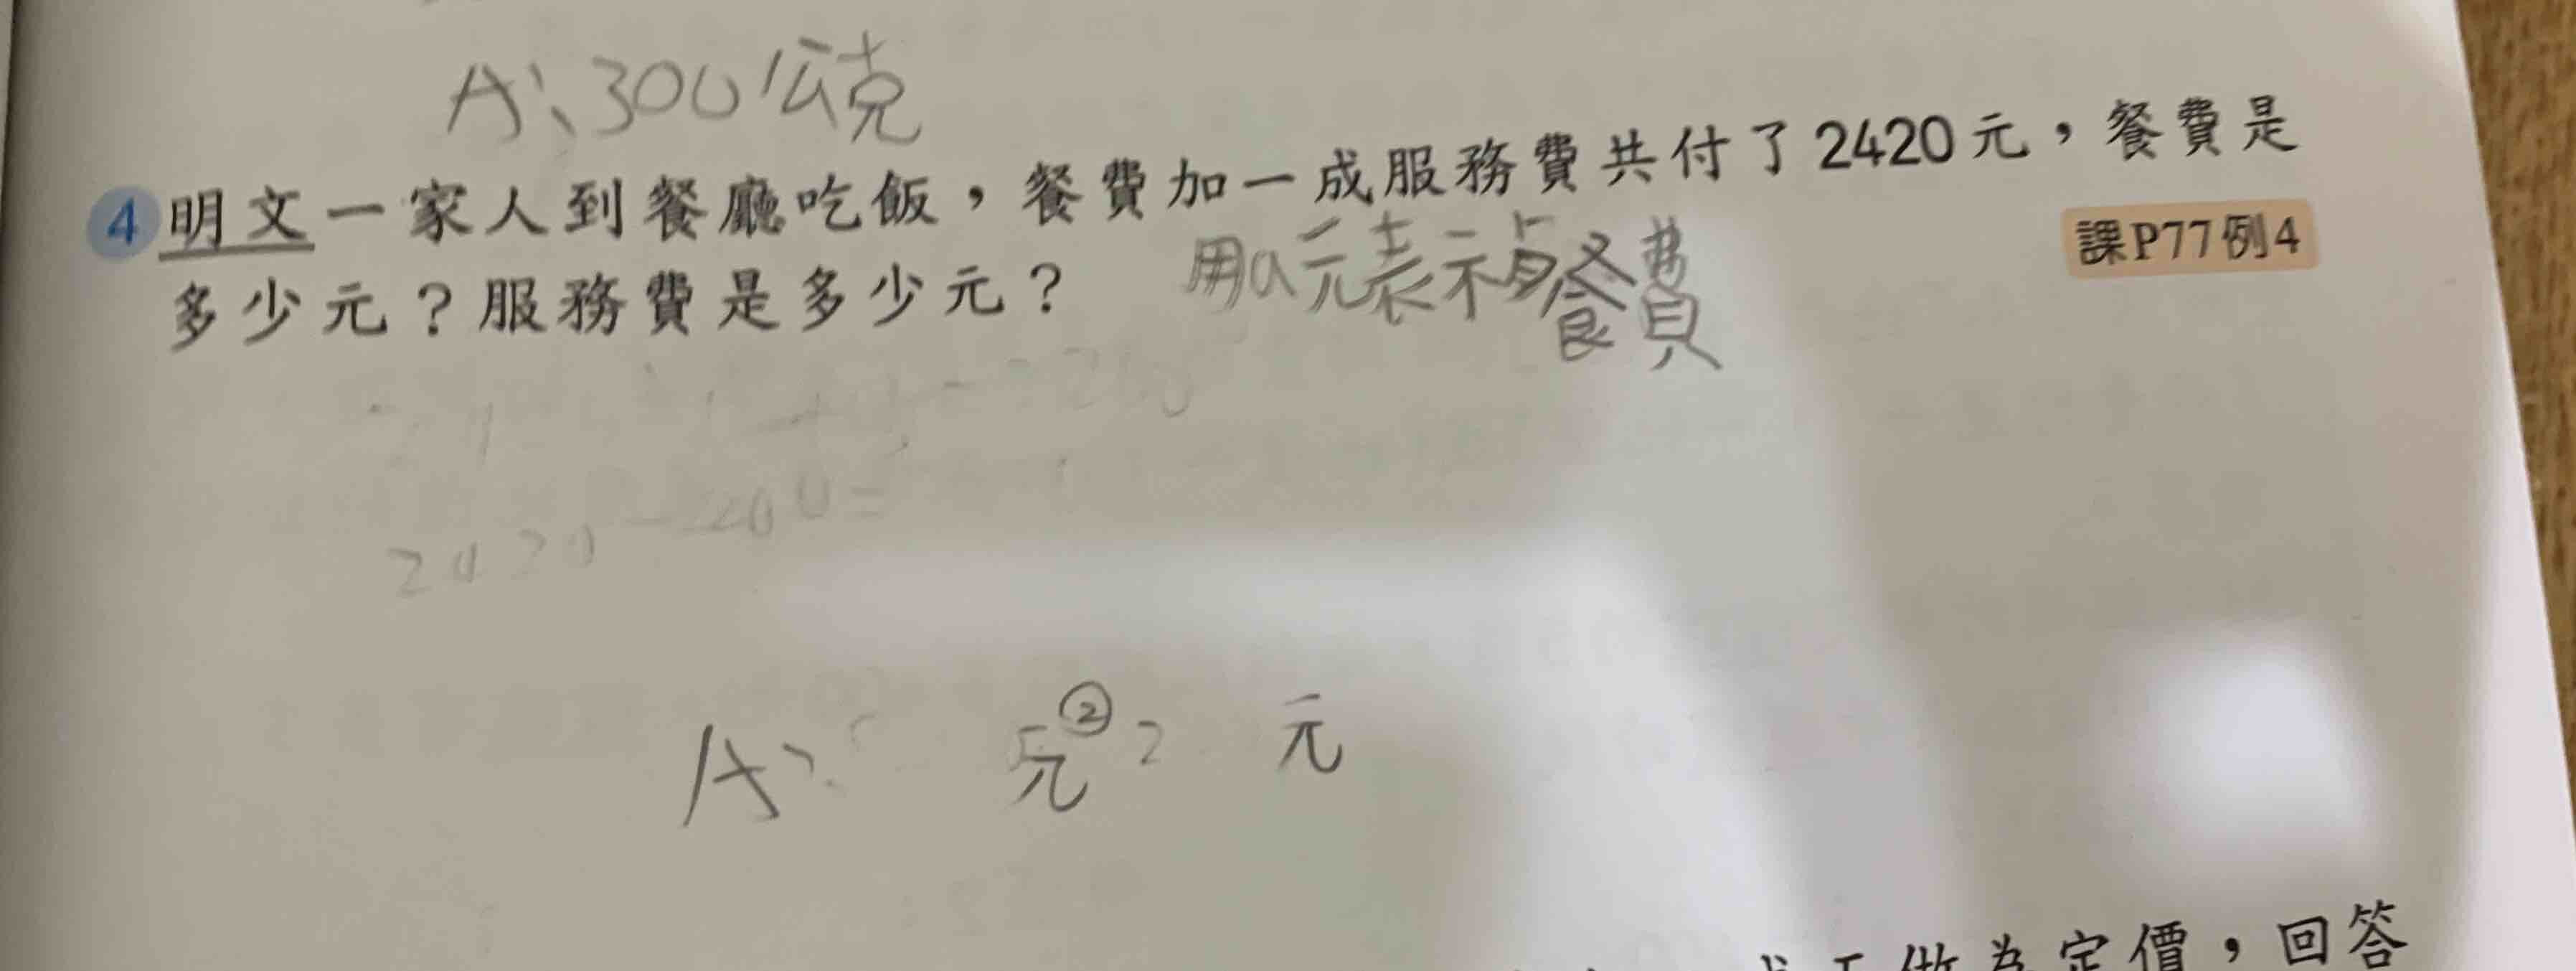 A：300公克
4 明文一家人到餐廳吃飯，餐費加一成服務費共付了2420元，餐費是
多少元？服務費是多少元？
課P77例4
用a元表示餐費
2420-200=
A：元②元
做為定價，回答